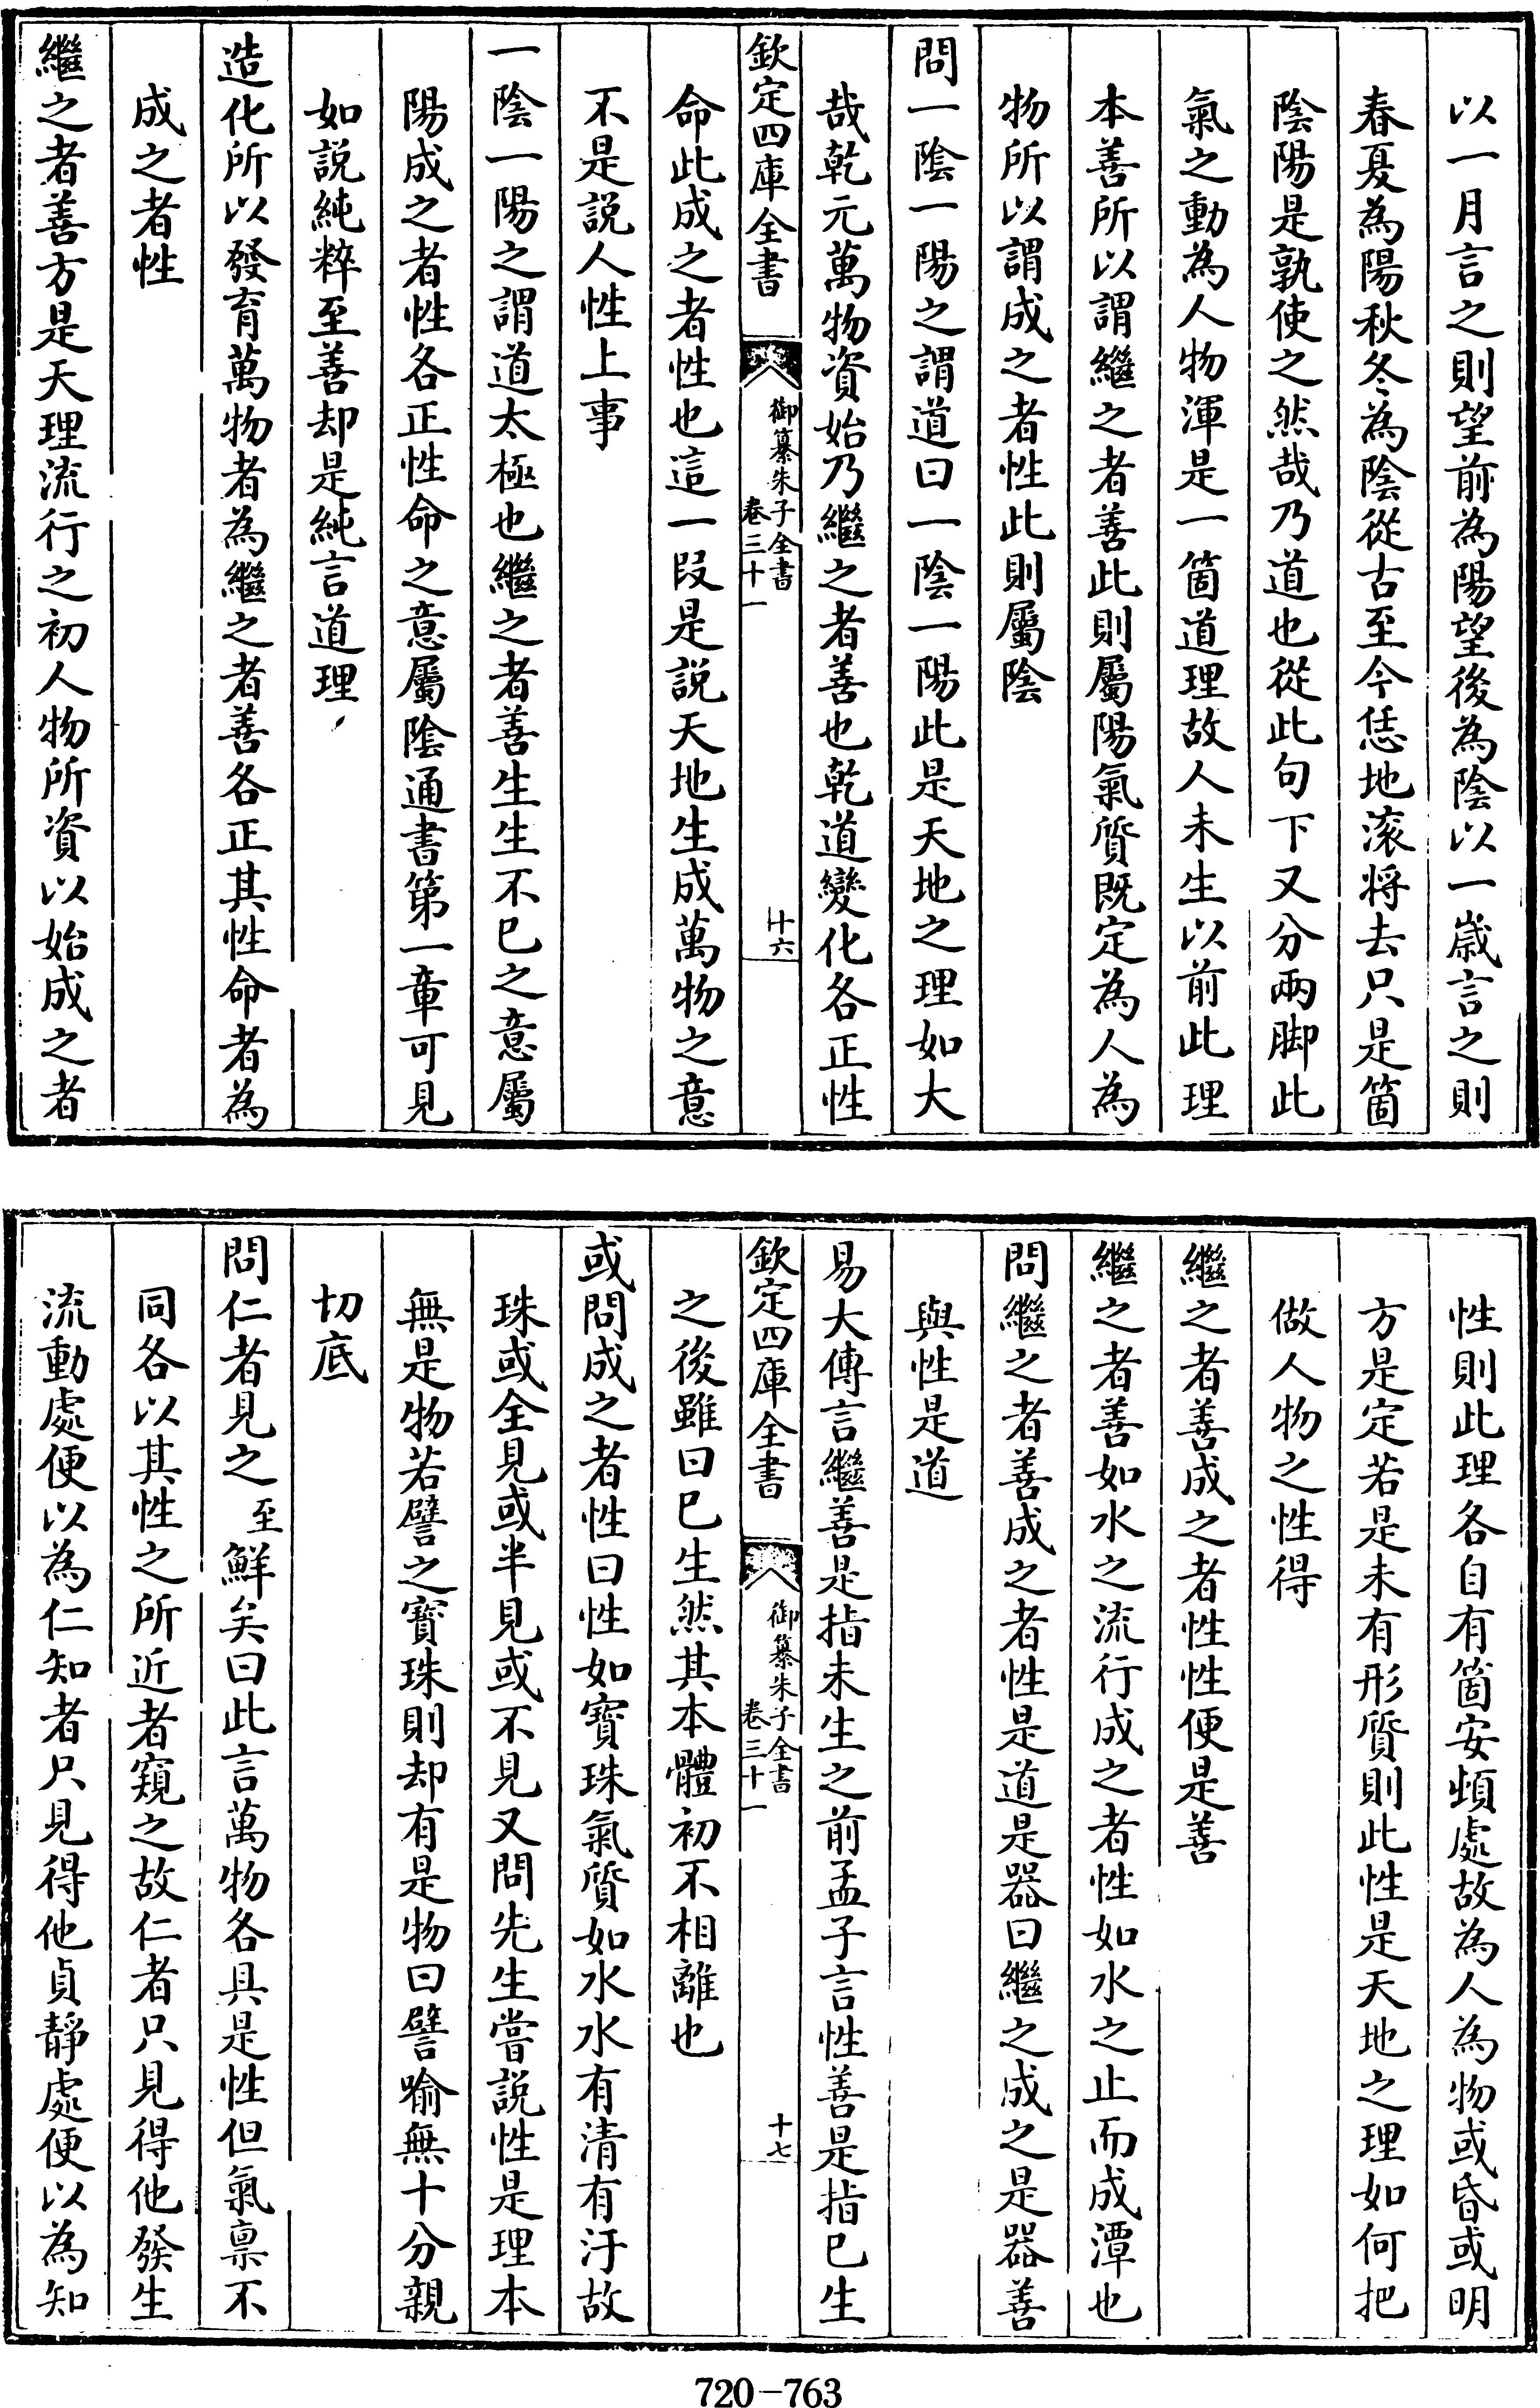 以一月言之則望前為陽望後為陰以一歳言之則
春夏為陽秋冬為陰從古至今恁地滚将去只是箇
陰陽是孰使之然哉乃道也從此句下又分兩脚此
氣之動為人物渾是一箇道理故人未生以前此理
本善所以謂繼之者善此則屬陽氣質既定為人為
物所以謂成之者性此則屬陰
問一陰一陽之謂道曰一陰一陽此是天地之理如大
哉乾元萬物資始乃繼之者善也乾道變化各正性
欽定四庫全書
御纂朱子全書
卷三十一
十六
命此成之者性也這一段是説天地生成萬物之意
不是説人性上事
一陰一陽之謂道太極也繼之者善生生不已之意屬
陽成之者性各正性命之意屬陰通書第一章可見
如說純粹至善却是純言道理
造化所以發育萬物者為繼之者善各正其性命者為
成之者性
繼之者善方是天理流行之初人物所資以始成之者
性則此理各自有箇安頓處故為人為物或昏或明
方是定若是未有形質則此性是天地之理如何把
做人物之性得
繼之者善成之者性性便是善
繼之者善如水之流行成之者性如水之止而成潭也
問繼之者善成之者性是道是器曰繼之成之是器善
與性是道
易大傳言繼善是指未生之前孟子言性善是指已生
欽定四庫全書
御纂朱子全書
卷三十一
十七
之後雖曰已生然其本體初不相離也
或問成之者性曰性如寶珠氣質如水水有清有汙故
珠或全見或半見或不見又問先生嘗説性是理本
無是物若譬之寶珠則却有是物曰譬喻無十分親
切底
問仁者見之至鮮矣曰此言萬物各具是性但氣禀不
同各以其性之所近者窺之故仁者只見得他發生
流動處便以為仁知者只見得他貞靜處便以為知
720-763